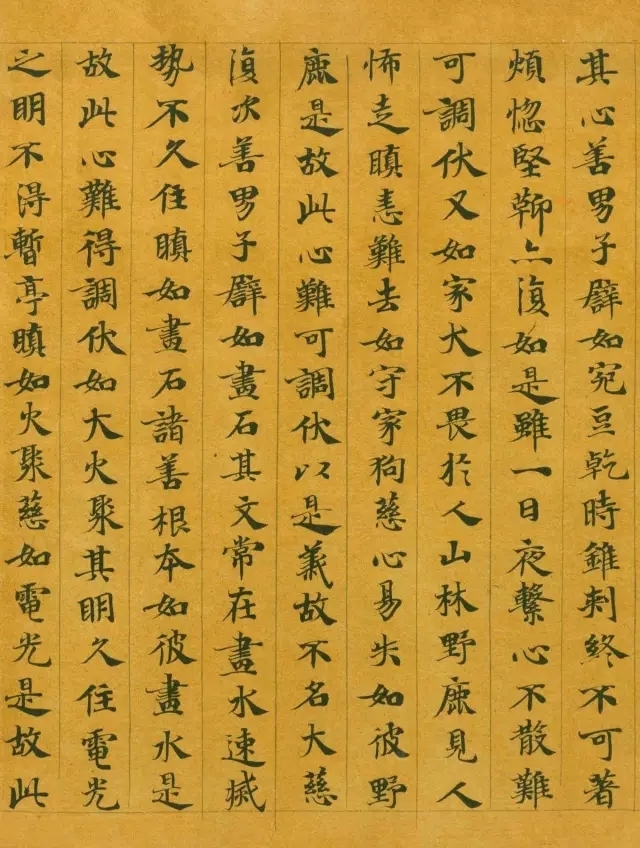 其心善男子譬如宛豆乾時錐刺終不可著
煩惚堅鞕亦復如是雖一日夜繫心不散難
可調伏又如家犬不畏於人山林野鹿見人
怖走瞋恚難去如守家狗慈心易失如彼野
鹿是故此心難可調伏以是義故不名大慈
復次善男子譬如畫石其文常在畫水速滅
勢不久住瞋如畫石諸善根本如彼畫水是
故此心難得調伏如大火聚其明久住電光
之明不得暫亭瞋如火聚慈如電光是故此